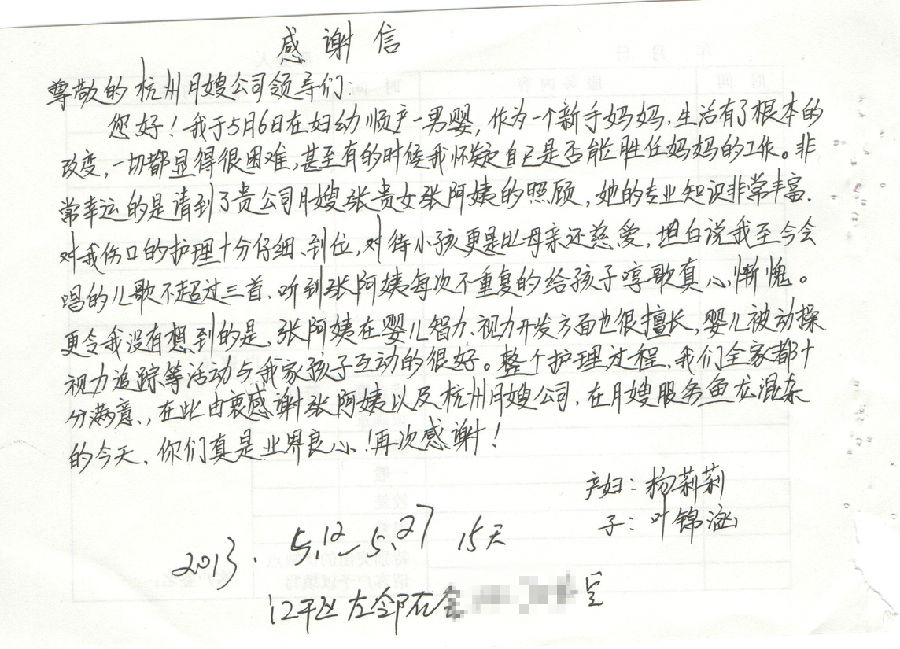 感谢信
尊敬的杭州月嫂公司领导们:
您好!我于5月6日在妇幼顺产一男婴,作为一个新手妈妈,生活有了根本的
改变,一切都显得很困难,甚至有的时候我怀疑自己是否能胜任妈妈的工作。非
常幸运的是请到了贵公司月嫂张贵女张阿姨的照顾,她的专业知识非常丰富,
对我伤口的护理十分仔细、到位,对待小孩更是比母亲还慈爱,坦白说我至今会
唱的儿歌不超过三首,听到张阿姨每次不重复的给孩子哼歌真心惭愧。
更令我没有想到的是,张阿姨在婴儿智力、视力开发方面也很擅长,婴儿被动操
视力追踪等活动与我家孩子互动的很好。整个护理过程,我们全家都十
分满意,在此由衷感谢张阿姨以及杭州月嫂公司,在月嫂服务鱼龙混杂
的今天,你们真是业界良心!再次感谢!
产妇:杨莉莉
子:叶锦涵
2013. 5.12-5.27 15天
江干区左邻右舍 室